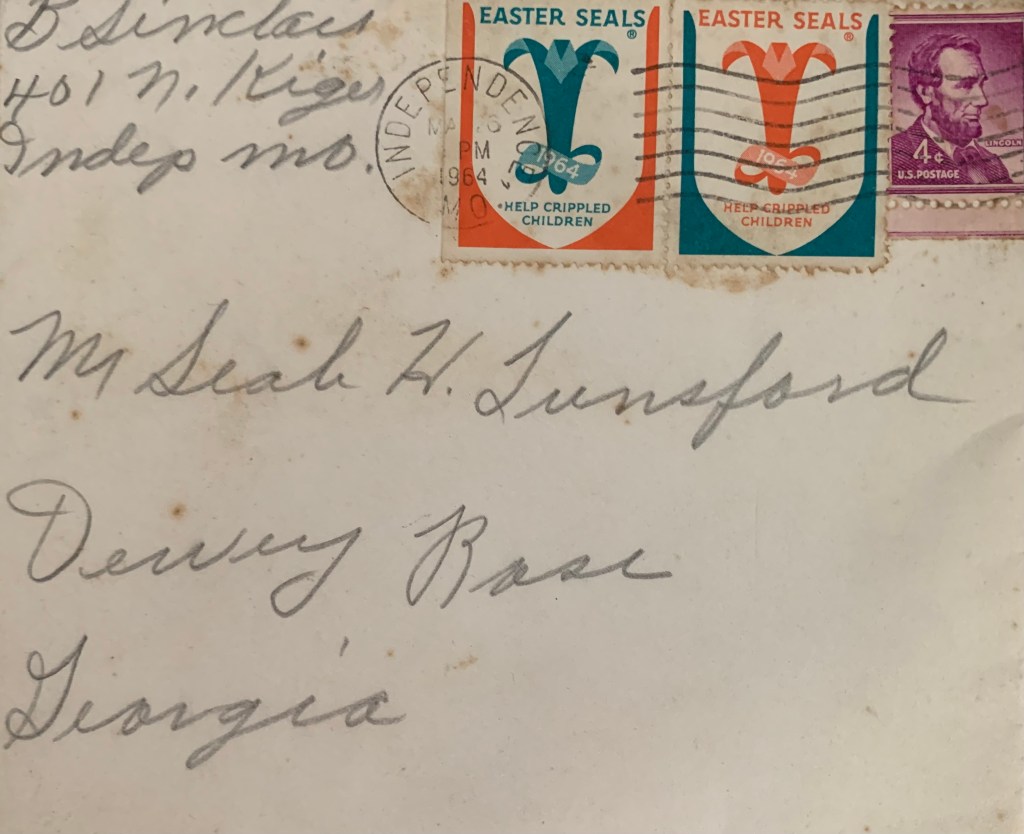 B Sinclair
401 N. Kiger
Indep Mo.
INDEPENDENCE,
PM
1964
MO
EASTER SEALS ®
1964
HELP CRIPPLED
CHILDREN
EASTER SEALS ®
1964
HELP CRIPPLED
CHILDREN
LINCOLN
4¢
U.S. POSTAGE
Mr Seab W. Lunsford
Dewey Rose
Georgia